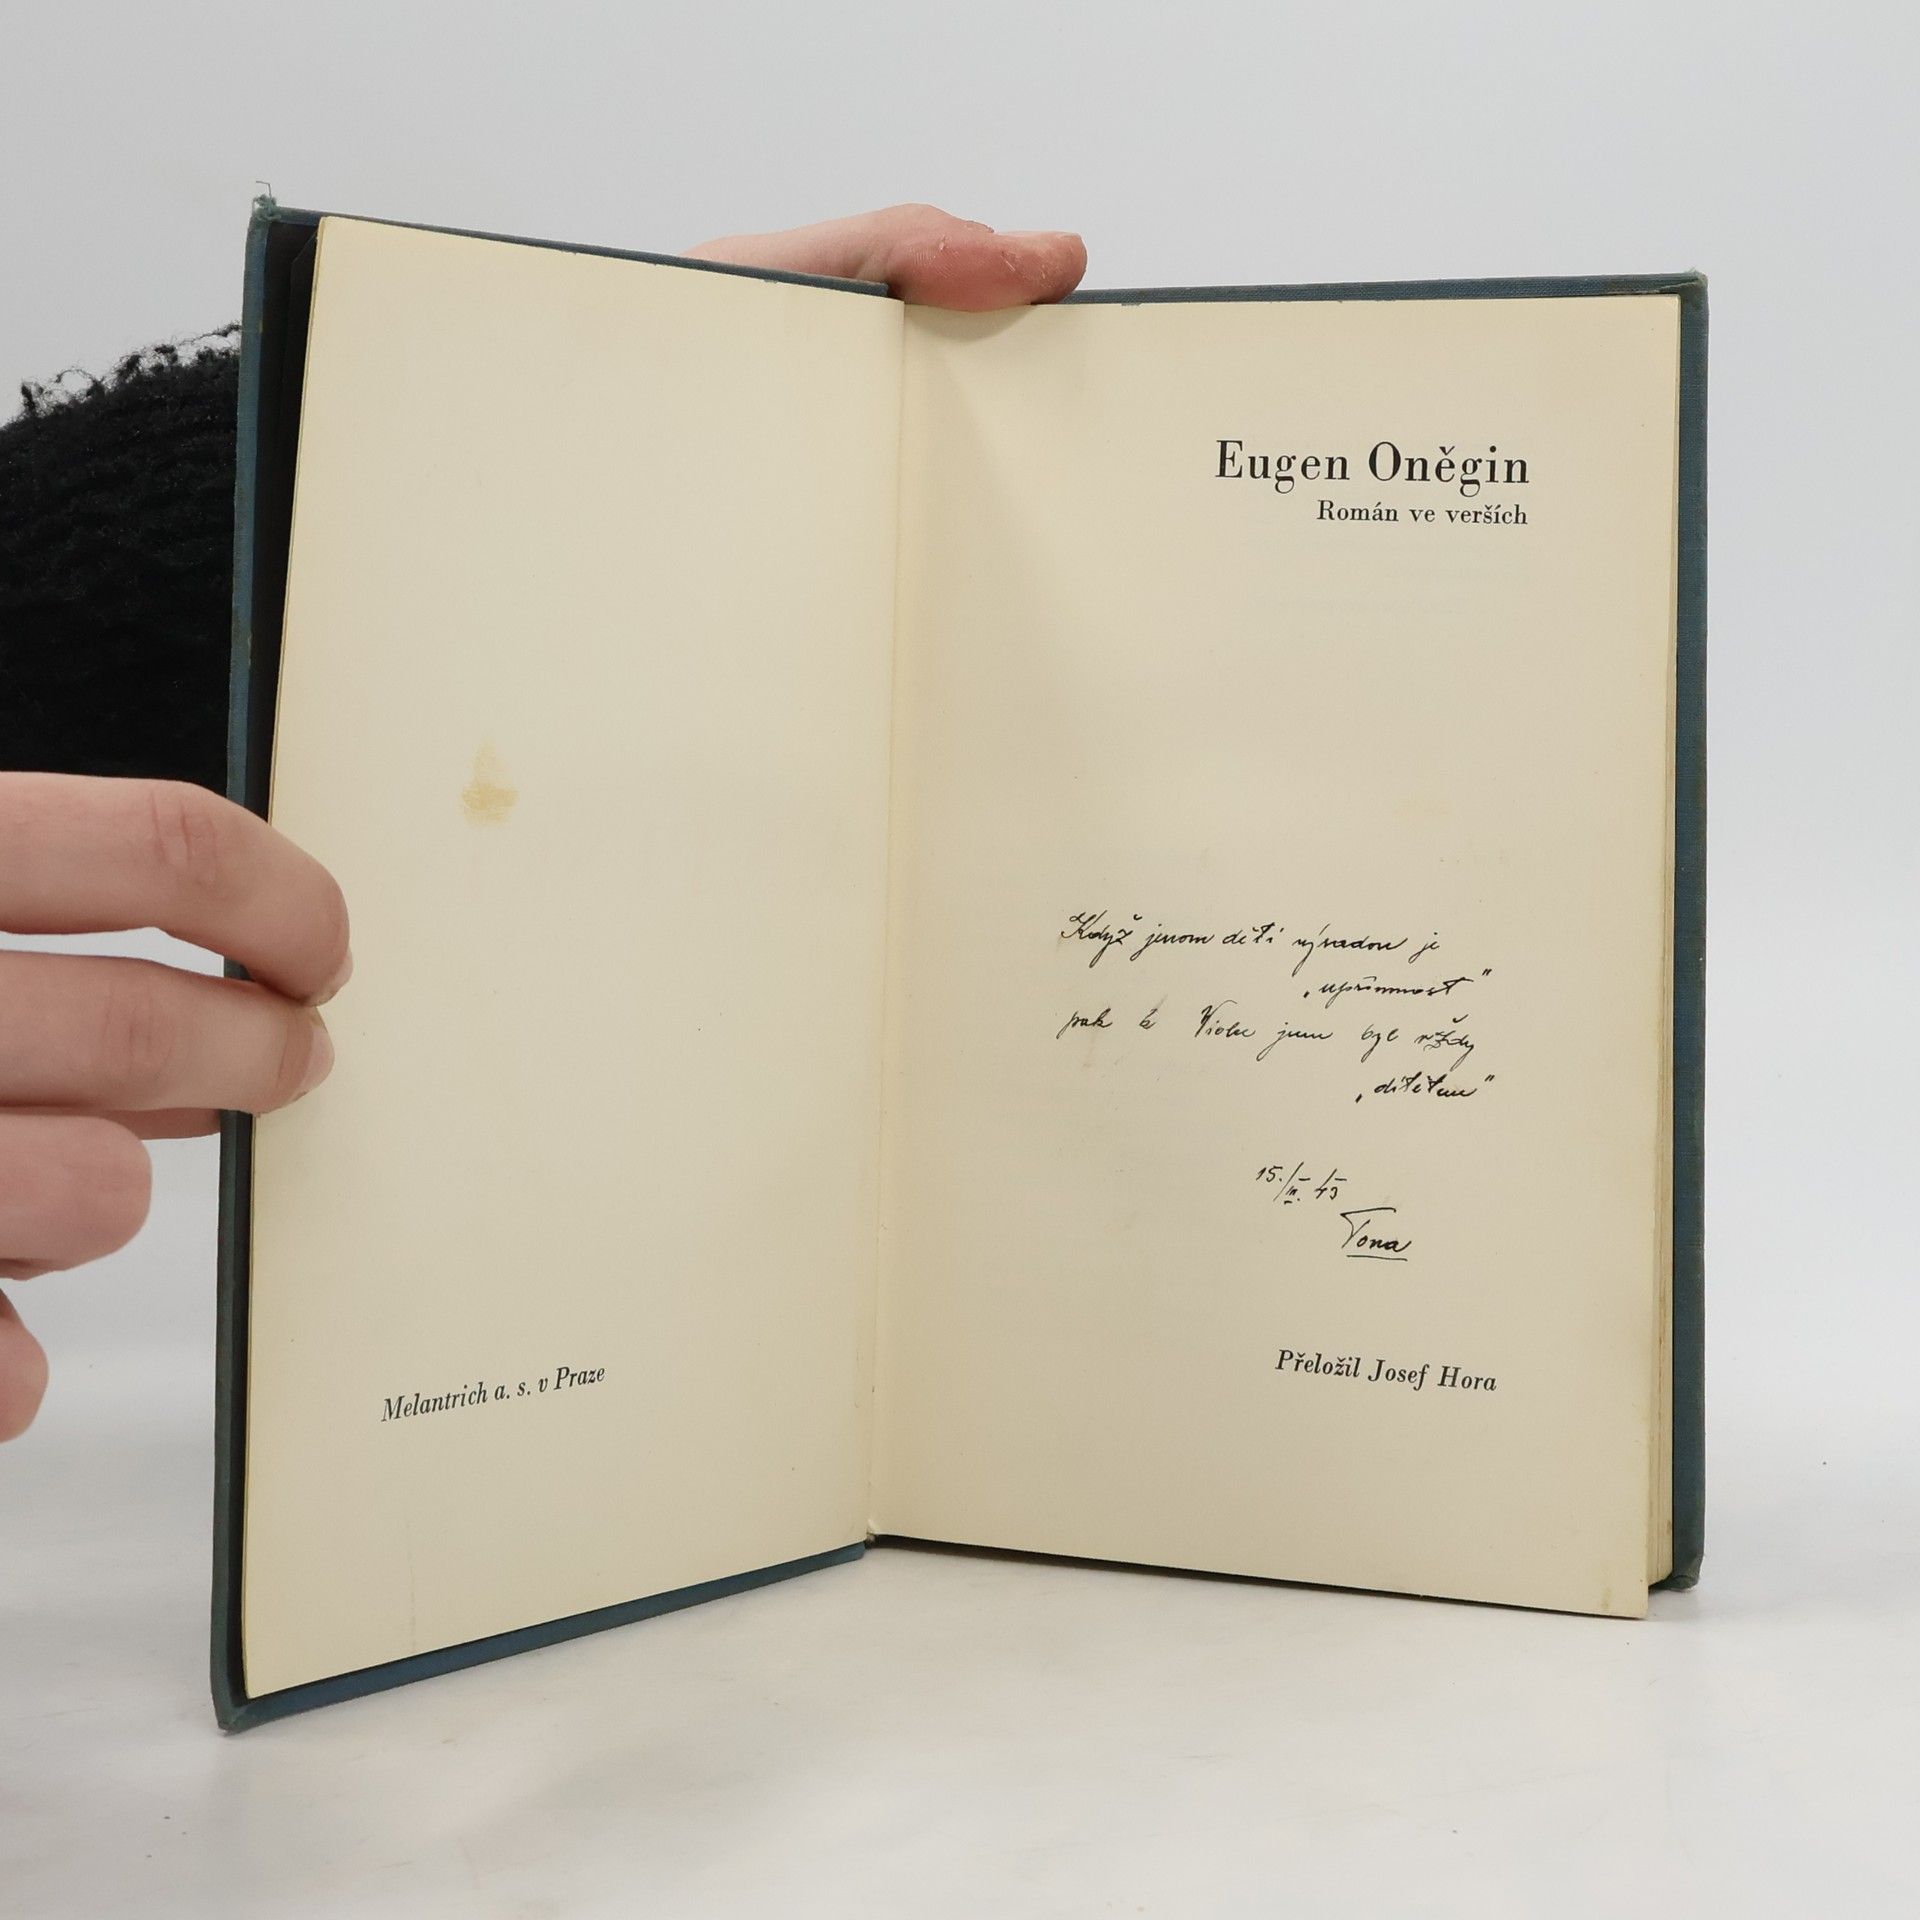 Melantrich a. s. v Praze
Eugen Oněgin
Román ve verších
Když jenom dětí výsadou je
„upřímnost"
pak k Violce jsem byl vždy
„dítětem"
15./III. 43
Tona
Přeložil Josef Hora